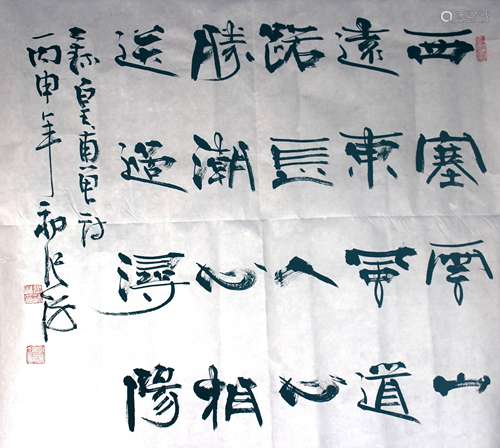 西塞雲山
遠東風道
路長人心
勝潮水相
送過潯陽
录皇甫冉詩
丙申年